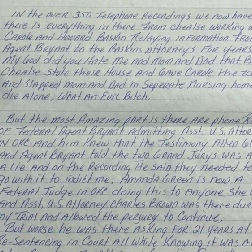 IN the over 350 Telephone Recordings we now have
there is everything in there from Cheatse working a
Carole and Howard Baskin Relaying information from
Agent Bryant to the Baskin Attorneys For years
My God did you Hate Me and Mom and Dad that B
Cheatse stole their House and Gave Carole the zoo
And slapped Mom and Dad in Seperate Nursing home
die Alone. What an Evil Bitch.
But the most Amazing part is there are phone Re
OF Federal Agent Bryant admitting Asst. U.S. Attor
IN OKC and him knew that the Testimony Allen G
And Agent Bryant told the two Grand Jurys was a
lie And on the Recording he said they needed to
go with it to shut me. Amanda Green is now A
Federal Judge in OKC doing this to Anyone she
And Asst. U.S. Attorney Charles Brown was there duri
my Trial and Allowed the perjury to Continue.
But worse he was there Asking For 21 years at
Re-Sentencing in Court All while Knowing it was